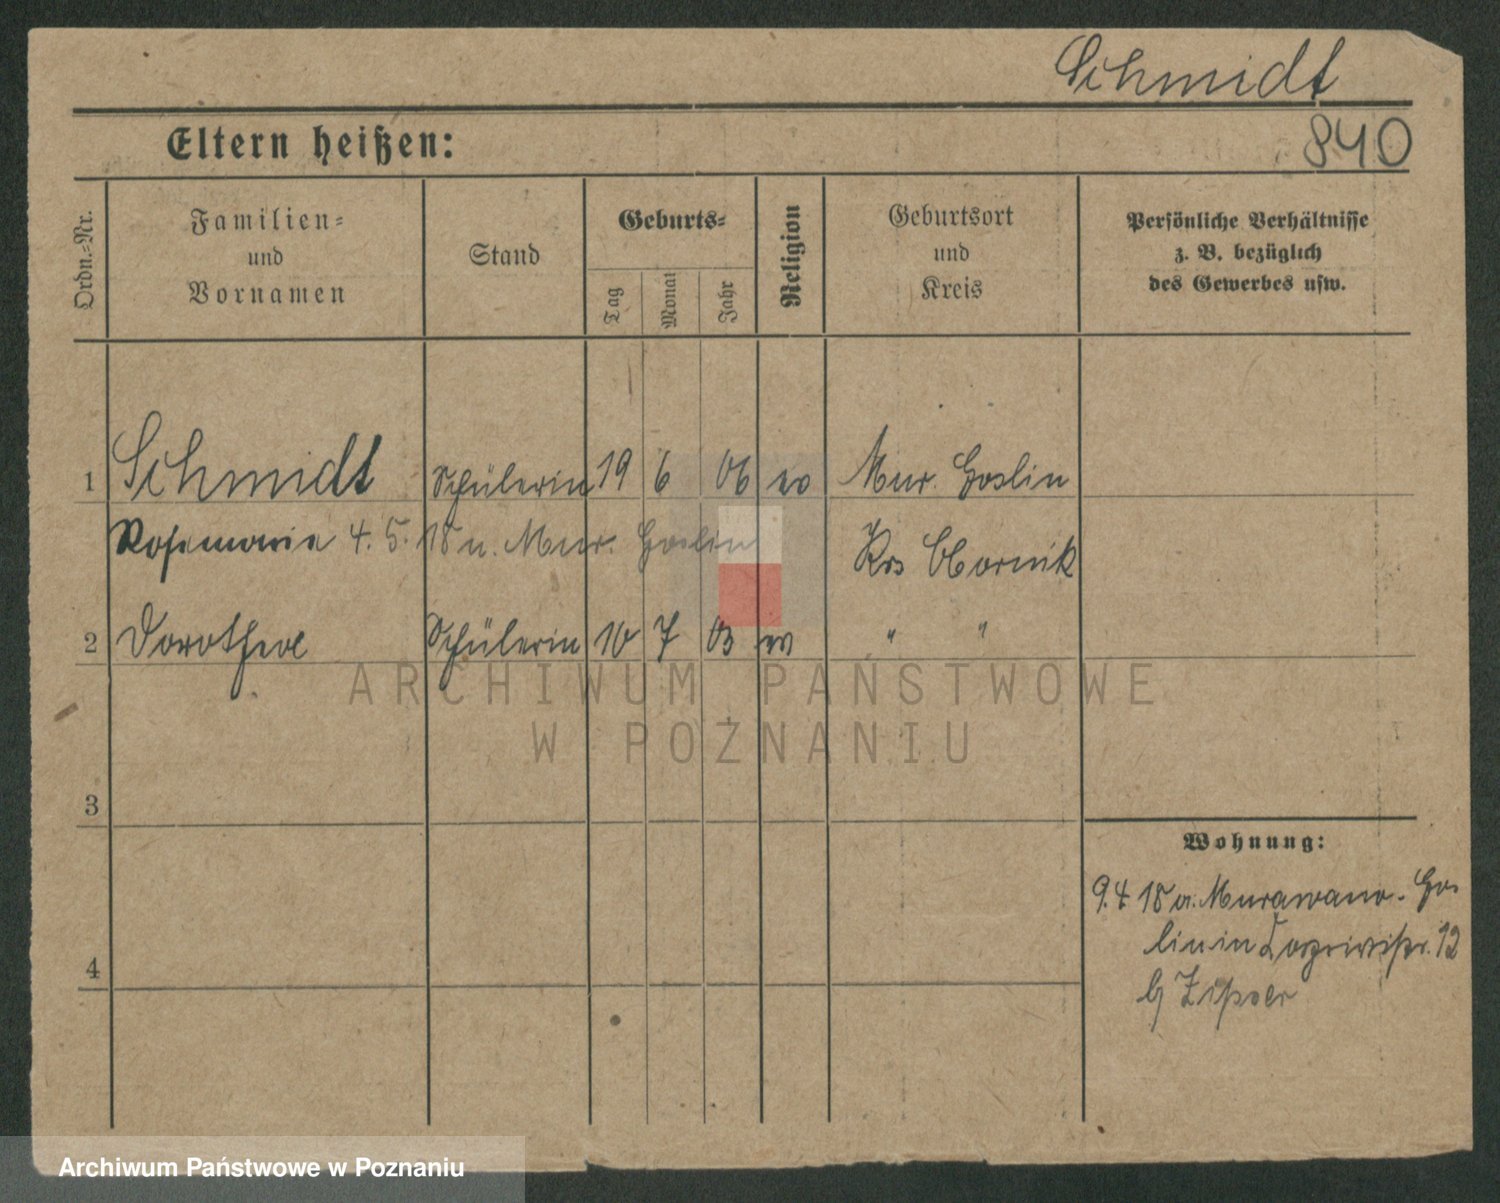 Schmidt
840
Eltern heißen:
Ordn.-Nr.
Familien-
und
Vornamen
Stand
Geburts-
Tag
Monat
Jahr
Religion
Geburtsort
und
Kreis
Persönliche Verhältnisse
z. B. bezüglich
des Gewerbes usw.
1 Schmidt Schülerin 19 6 06 ev Mur. Goslin
Rosemarie 4. 5. 18 n. Mur. Goslin Krs Obornik
2 Dorothea Schülerin 10 7 03 ev " "
ARCHIWUM PAŃSTWOWE
W POZNANIU
3
Wohnung:
9.4 18 a. Murawana-Gos
lin in 12
4
b/
Archiwum Państwowe w Poznaniu